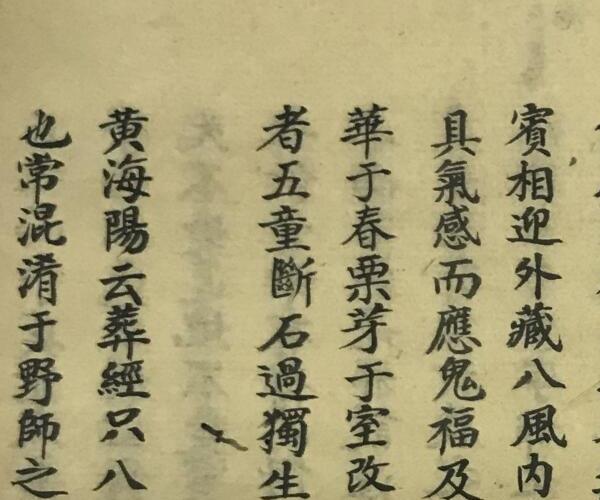 賓相迎外藏八風内
具氣感而應鬼福及
華于春栗芽于室改
者五童斷石過獨生
黄海陽云葬經只八
也常混淆于野師之